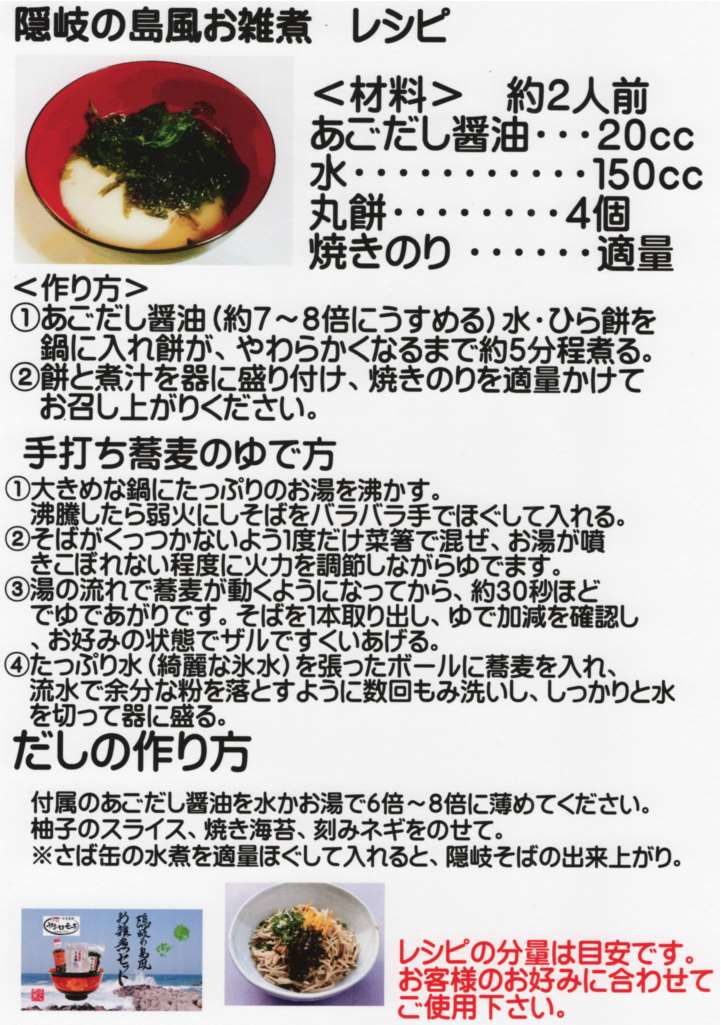 隠岐の島風お雑煮　レシピ
＜材料＞　約2人前
あごだし醤油・・・20cc
水・・・・・・・・・・・150cc
丸餅・・・・・・・・4個
焼きのり・・・・・・適量
＜作り方＞
①あごだし醤油（約7～8倍にうすめる）水・ひら餅を
鍋に入れ餅が、やわらかくなるまで約5分程煮る。
②餅と煮汁を器に盛り付け、焼きのりを適量かけて
お召し上がりください。
手打ち蕎麦のゆで方
①大きめな鍋にたっぷりのお湯を沸かす。
沸騰したら弱火にしそばをバラバラ手でほぐして入れる。
②そばがくっつかないよう1度だけ菜箸で混ぜ、お湯が噴
きこぼれない程度に火力を調節しながらゆでます。
③湯の流れで蕎麦が動くようになってから、約30秒ほど
でゆであがりです。そばを1本取り出し、ゆで加減を確認し
、お好みの状態でザルですくいあげる。
④たっぷり水（綺麗な氷水）を張ったボールに蕎麦を入れ、
流水で余分な粉を落とすように数回もみ洗いし、しっかりと水
を切って器に盛る。
だしの作り方
付属のあごだし醤油を水かお湯で6倍～8倍に薄めてください。
柚子のスライス、焼き海苔、刻みネギをのせて。
※さば缶の水煮を適量ほぐして入れると、隠岐そばの出来上がり。
隠岐の島風
お雑煮セット
レシピの分量は目安です。
お客様のお好みに合わせて
ご使用下さい。